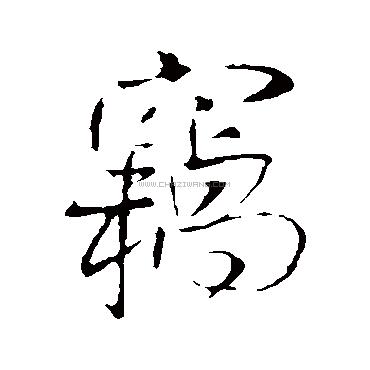 竊
WWW.CHAZIWANG.COM